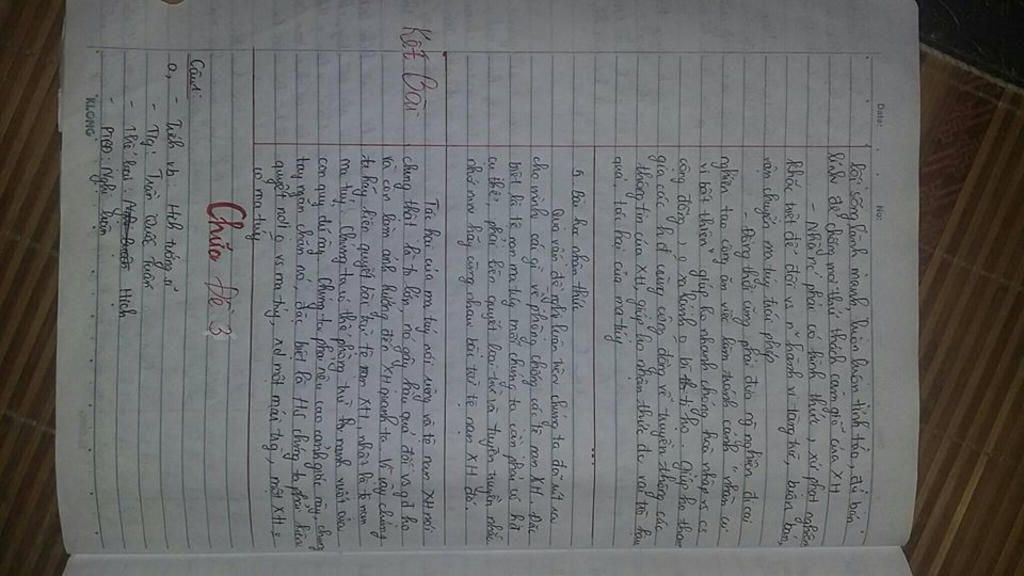 Date: No:
lối sống lành mạnh, luôn luôn tỉnh táo, đủ bản
lĩnh để chống mọi thử thách cám giỗ của XH
- Nhà nc phải có hình thức, xử phạt
khắc triệt để đối vs n~ hành vi tàng trữ, buôn bán,
vận chuyển ma túy trái phép
- Đồng thời cũng phải đưa ng nghiện đi cai
nghiện tạo công ăn việc làm tránh cảnh "nhàn cư
vi bất thiện" giúp họ nhanh chóng hoà nhập vs
cộng đồng, o xa lánh o kì thị họ. Giúp họ tham
gia các hđ cung cộng đồng về truyền thông các
thông tin của XH, giúp họ nhận thức đc vai trò hậu
quả, tác hại của ma túy
5 Bài học nhận thức
Qua vấn đề nghị luận trên chúng ta đã rút ra
cho mình cái gì về phòng chống các tệ nạn XH. Đặc
biệt là tệ nạn ma túy, mỗi chúng ta cần phải có hđ
cụ thể, phải kiên quyết loại trừ và tuyên truyền nhắc
nhở nhau hãy cùng nhau bài trừ tệ nạn XH đó.
Kết Bài
Tác hại của ma túy nói riêng và tệ nạn XH nói
chung thật là to lớn, nó gây hậu quả đối vs gđ họ
và còn làm ảnh hưởng đến XH quanh ta. Vì vậy chúng
ta hãy kiên quyết bài trừ tệ nạn XH nhất là tệ nạn
ma túy. Chúng ta vì thế phòng thủ thật mạnh vuốt của
con quỷ dữ ấy. Chúng ta phải nêu cao cảnh giác này, chung
tay ngăn chặn nó, đặc biệt là HS chúng ta phải kiên
quyết nói o vs ma túy, xd một mái trg, một XH
o ma túy
Chữa đề 3
Câu 1:
a, - Trích vb: Hịch tướng sĩ
- Tg: Trần Quốc Tuấn
- Thể loại: Hịch
- PTBĐ: Nghị luận
KLONG